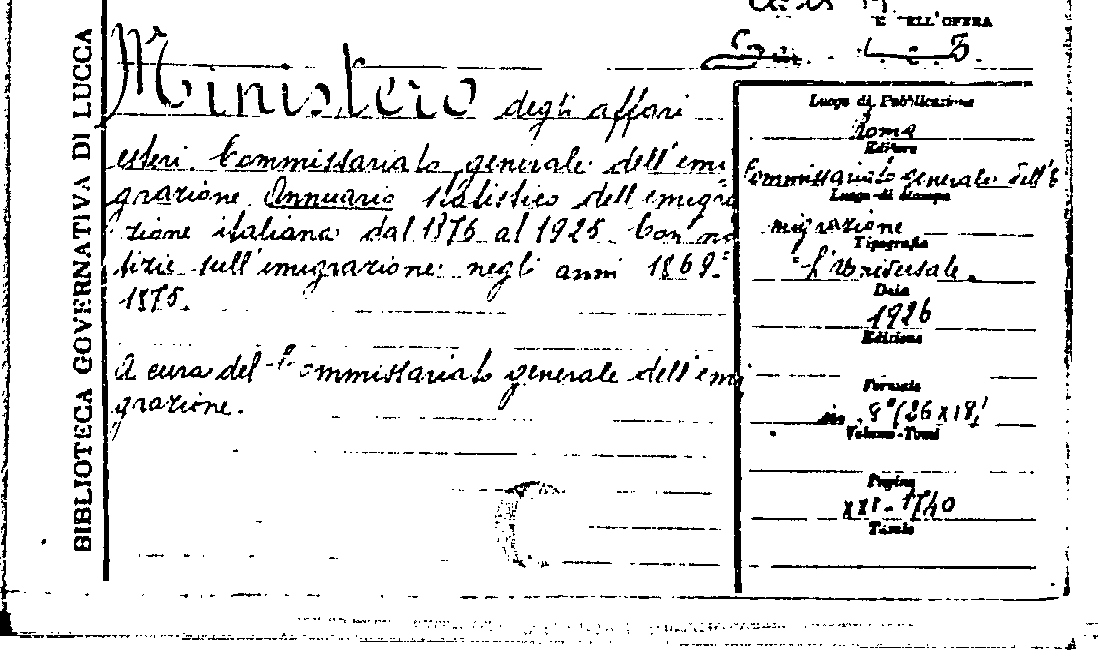 BIBLIOTECA GOVERNATIVA DI LUCCA
E DELL'OPERA
Ministero degli affari
esteri. Commissariato generale dell'emi
grazione. Annuario statistico dell'emigra
zione italiana dal 1876 al 1925. Con no
tizie sull'emigrazione negli anni 1869-
1875.
A cura del Commissariato generale dell'emi
grazione.
Luogo di Pubblicazione
Roma
Editore
Commissariato generale dell'E
Luogo di Stampa
migrazione
Tipografia
"L'Universale"
Data
1926
Edizione
Formato
in 8° (26x18)
Volume-Tomi
Pagine
XXI-1740
Tavole